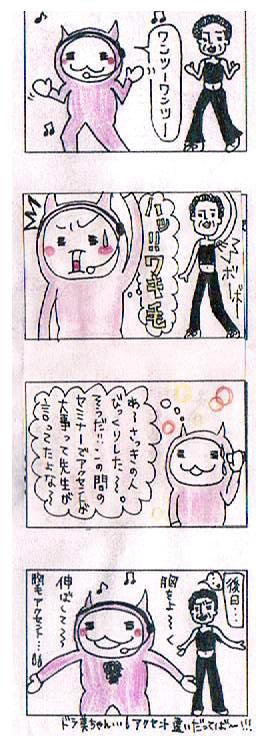 ワンツーワンツー
ハッ!!ワキ毛
ボーボ
あ〜さっきの人
びっくりした〜。
そうだ!!この間の
セミナーでアクセントが
大事って先生が
言ってたよな〜
後日…
胸をよ〜く
伸ばして〜〜
胸もアクセント…
ドラ美ちゃん…アクセント違いだってば〜!!!